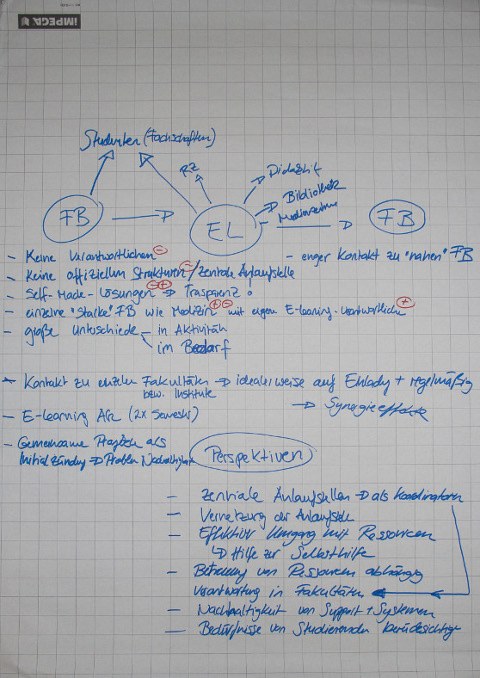 IMPEGA
Studenten (Fachschaften)
RZ
Didaktik
Bibliothek
Medienzentrum
FB
EL
FB
- Keine Verantwortlichen -
- enger Kontakt zu "nahen" FB
- Keine offiziellen Strukturen - / zentrale Anlaufstelle
- Self-Made-Lösungen - + → Trasparenz!
- einzelne "starke" FB wie Medizin + - mit eigen E-learning-verantwortliche +
- große Unterschiede - in Aktivität
im Bedarf
- Kontakt zu einzeln Fakultäten → idealerweise auf + regelmäßig
bzw. Institute
→ Synergieeffekte
- E-learning (2x Semester)
- Gemeinsame Projekte als
Initialzündung → Problem Nachhaltigkeit
Perspektiven
- zentrale Anlaufstellen → als Koordinatoren
- Vernetzung der Anlaufstelle
- Effektiver Umgang mit Ressourcen
↳ Hilfe zur Selbsthilfe
- Betreuung von Ressourcen abhängig
Verantwortung in Fakultäten
- Nachhaltigkeit von Support + Systemen
- Bedürfnisse von Studierenden berücksichtige